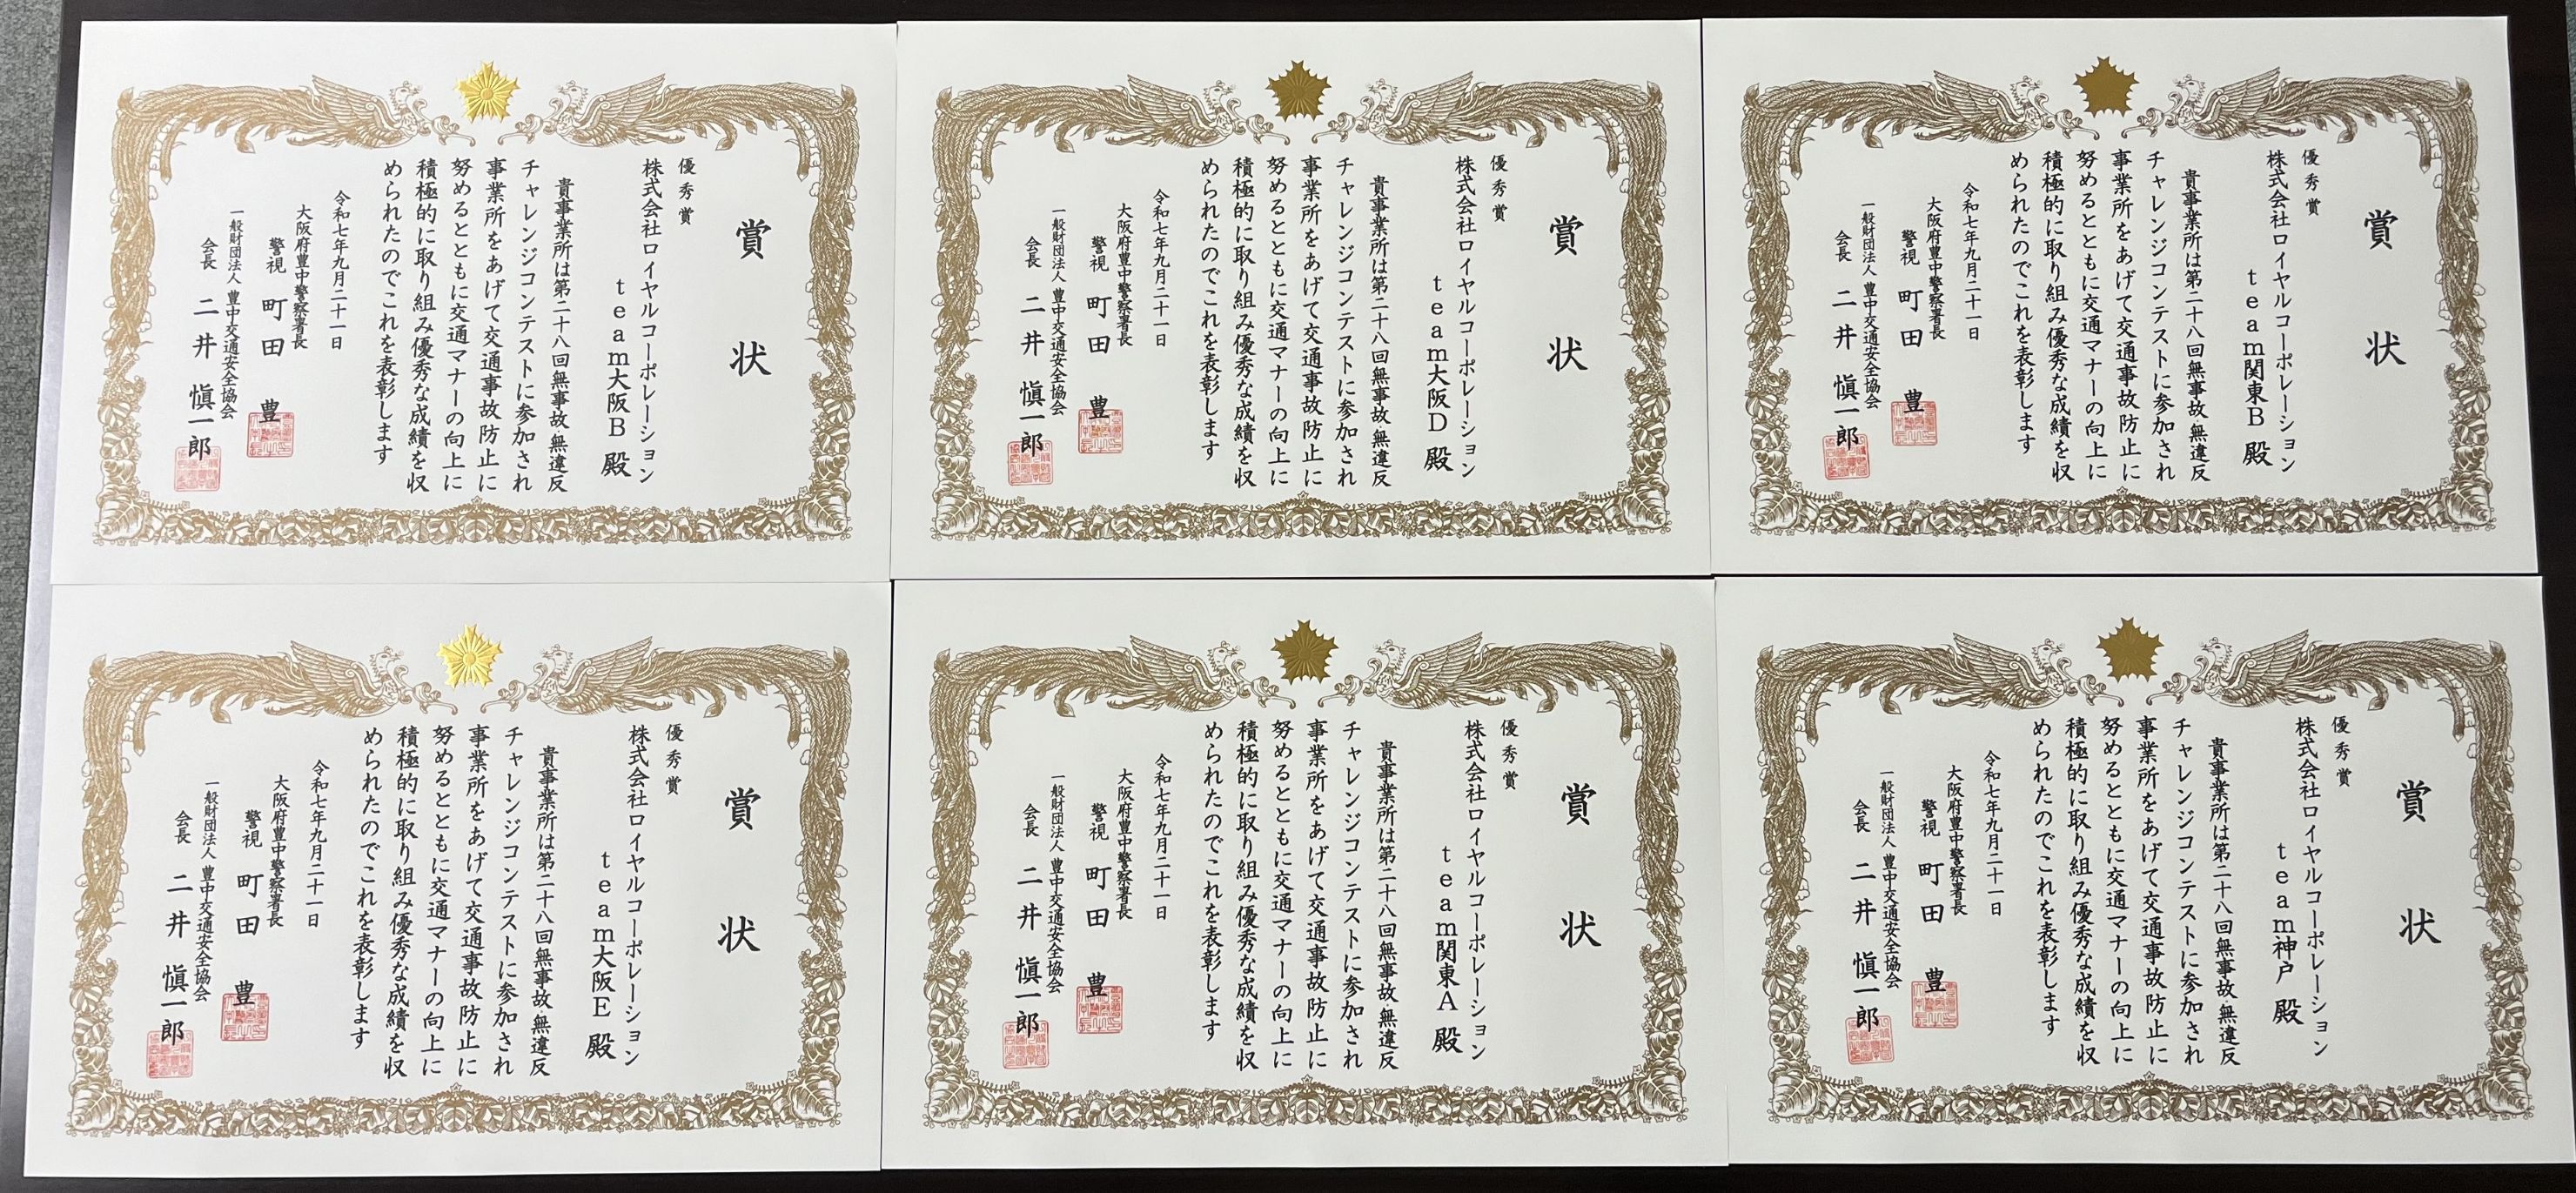 賞状
優秀賞
株式会社ロイヤルコーポレーション
team大阪B 殿
貴事業所は第二十八回無事故・無違反
チャレンジコンテストに参加され
事業所をあげて交通事故防止に
努めるとともに交通マナーの向上に
積極的に取り組み優秀な成績を収
められたのでこれを表彰します
令和七年九月二十一日
大阪府豊中警察署長
警視 町田 豊
一般財団法人 豊中交通安全協会
会長 二井 愼一郎
賞状
優秀賞
株式会社ロイヤルコーポレーション
team大阪D 殿
貴事業所は第二十八回無事故・無違反
チャレンジコンテストに参加され
事業所をあげて交通事故防止に
努めるとともに交通マナーの向上に
積極的に取り組み優秀な成績を収
められたのでこれを表彰します
令和七年九月二十一日
大阪府豊中警察署長
警視 町田 豊
一般財団法人 豊中交通安全協会
会長 二井 愼一郎
賞状
優秀賞
株式会社ロイヤルコーポレーション
team関東B 殿
貴事業所は第二十八回無事故・無違反
チャレンジコンテストに参加され
事業所をあげて交通事故防止に
努めるとともに交通マナーの向上に
積極的に取り組み優秀な成績を収
められたのでこれを表彰します
令和七年九月二十一日
大阪府豊中警察署長
警視 町田 豊
一般財団法人 豊中交通安全協会
会長 二井 愼一郎
賞状
優秀賞
株式会社ロイヤルコーポレーション
team大阪E 殿
貴事業所は第二十八回無事故・無違反
チャレンジコンテストに参加され
事業所をあげて交通事故防止に
努めるとともに交通マナーの向上に
積極的に取り組み優秀な成績を収
められたのでこれを表彰します
令和七年九月二十一日
大阪府豊中警察署長
警視 町田 豊
一般財団法人 豊中交通安全協会
会長 二井 愼一郎
賞状
優秀賞
株式会社ロイヤルコーポレーション
team関東A 殿
貴事業所は第二十八回無事故・無違反
チャレンジコンテストに参加され
事業所をあげて交通事故防止に
努めるとともに交通マナーの向上に
積極的に取り組み優秀な成績を収
められたのでこれを表彰します
令和七年九月二十一日
大阪府豊中警察署長
警視 町田 豊
一般財団法人 豊中交通安全協会
会長 二井 愼一郎
賞状
優秀賞
株式会社ロイヤルコーポレーション
team神戸 殿
貴事業所は第二十八回無事故・無違反
チャレンジコンテストに参加され
事業所をあげて交通事故防止に
努めるとともに交通マナーの向上に
積極的に取り組み優秀な成績を収
められたのでこれを表彰します
令和七年九月二十一日
大阪府豊中警察署長
警視 町田 豊
一般財団法人 豊中交通安全協会
会長 二井 愼一郎